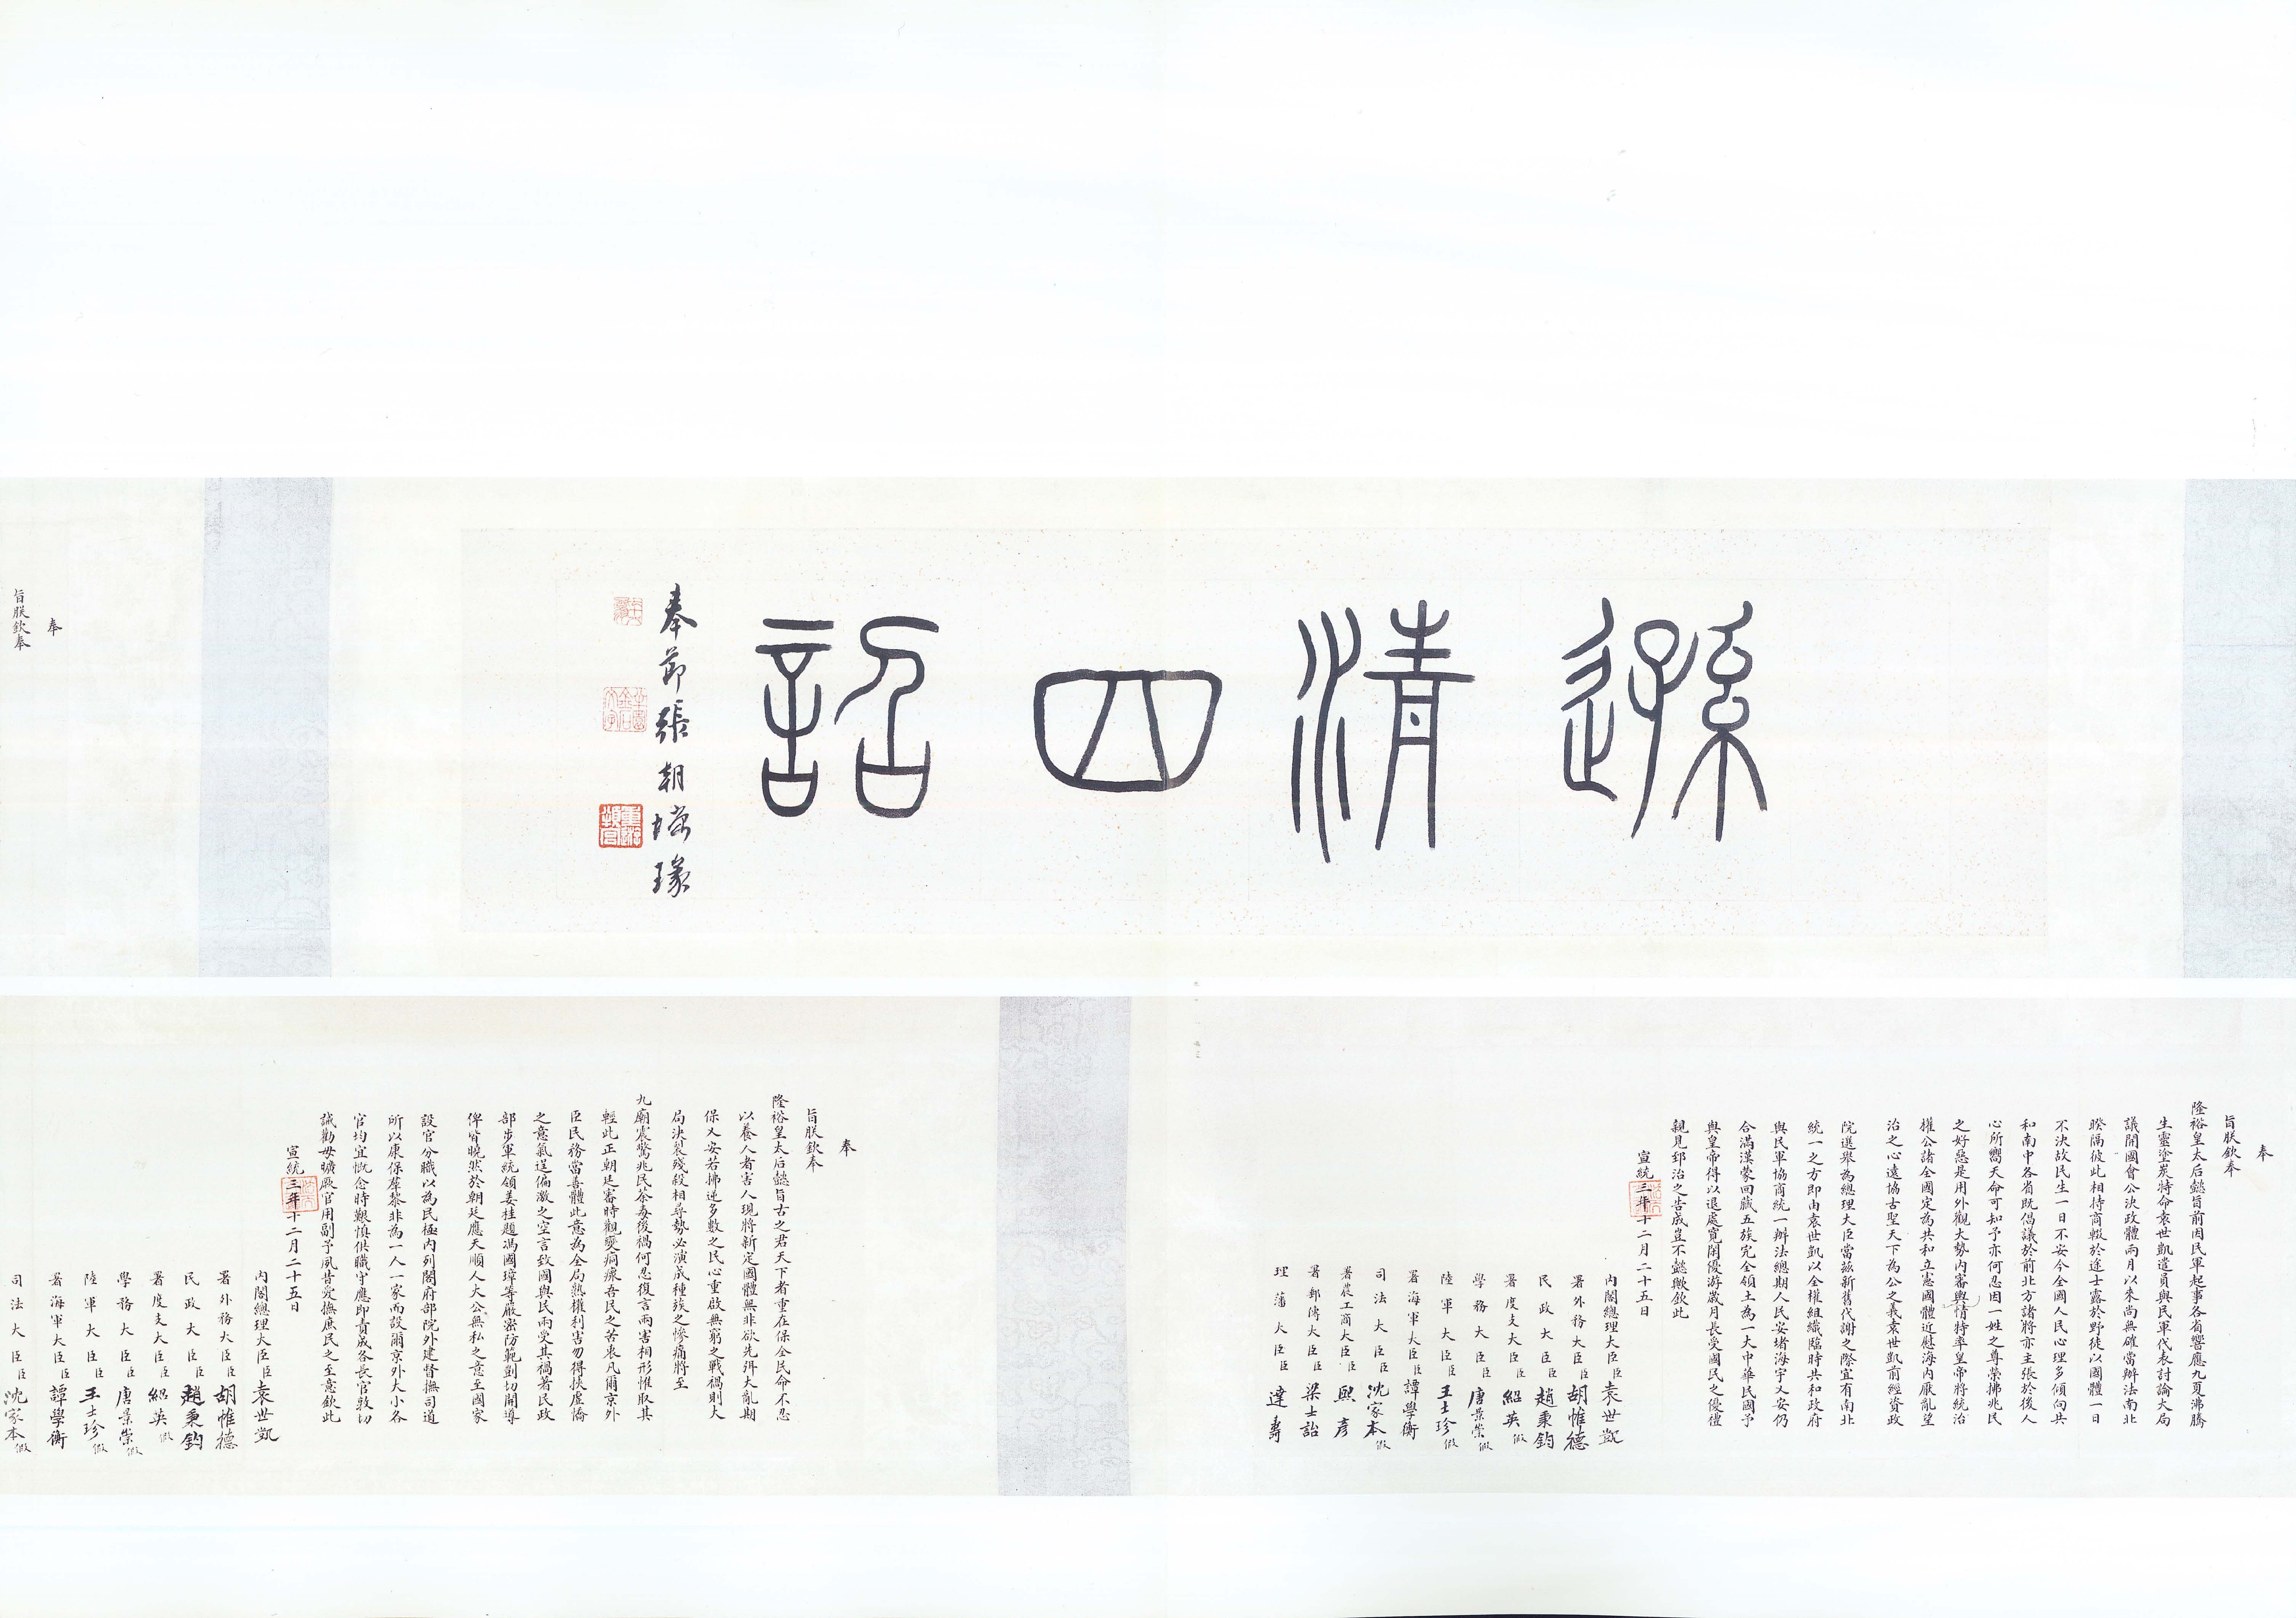 遜清四詔
奉節張朝墉瑑
奉
旨朕欽奉
奉
旨朕欽奉
隆裕皇太后懿旨前因民軍起事各省響應九夏沸騰
生靈塗炭特命袁世凱遣員與民軍代表討論大局
議開國會公決政體兩月以來尚無確當辦法南北
暌隔彼此相持商輟於途士露於野徒以國體一日
不決故民生一日不安今全國人民心理多傾向共
和南中各省既倡議於前北方諸將亦主張於後人
心所嚮天命可知予亦何忍因一姓之尊榮拂兆民
之好惡是用外觀大勢內審輿情特率皇帝將統治
權公諸全國定為共和立憲國體近慰海內厭亂望
治之心遠協古聖天下為公之義袁世凱前經資政
院選舉為總理大臣當茲新舊代謝之際宜有南北
統一之方即由袁世凱以全權組織臨時共和政府
與民軍協商統一辦法總期人民安堵海宇乂安仍
合滿漢蒙回藏五族完全領土為一大中華民國予
與皇帝得以退處寬閒優游歲月長受國民之優禮
親見郅治之告成豈不懿歟欽此
宣統三年十二月二十五日
內閣總理大臣臣袁世凱
署外務大臣臣胡惟德
民政大臣臣趙秉鈞
署度支大臣臣紹英假
學務大臣臣唐景崇假
陸軍大臣臣王士珍假
署海軍大臣臣譚學衡
司法大臣臣沈家本假
署農工商大臣臣熙彥
署郵傳大臣臣梁士詒
理藩大臣臣達壽
奉
旨朕欽奉
隆裕皇太后懿旨古之君天下者重在保全民命不忍
以養人者害人現將新定國體無非欲先弭大亂期
保乂安若拂逆多數之民心重啟無窮之戰禍則大
局決裂殘殺相尋勢必演成種族之慘痛將至
九廟震驚兆民荼毒後禍何忍復言兩害相形惟取其
輕此正朝廷審時觀變痌瘝吾民之苦衷凡爾京外
臣民務當善體此意為全局熟權利害勿得挾虛憍
之意氣逞偏激之空言致國與民兩受其禍著民政
部步軍統領姜桂題馮國璋等嚴密防範剴切開導
俾皆曉然於朝廷應天順人大公無私之意至國家
設官分職以為民極內列閣府部院外建督撫司道
所以康保羣黎非為一人一家而設爾京外大小各
官均宜慨念時艱慎供職守應即責成各長官敦切
誡勸毋曠厥官用副予夙昔愛撫庶民之至意欽此
宣統三年十二月二十五日
內閣總理大臣臣袁世凱
署外務大臣臣胡惟德
民政大臣臣趙秉鈞
署度支大臣臣紹英假
學務大臣臣唐景崇假
陸軍大臣臣王士珍假
署海軍大臣臣譚學衡
司法大臣臣沈家本假